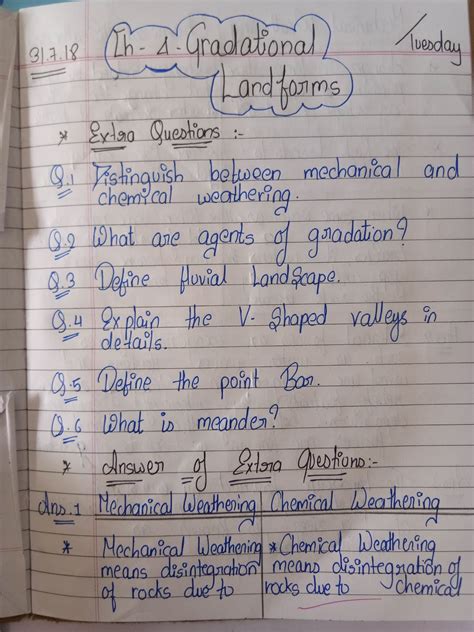 31.7.18
Ch-4-Gradational
Landforms
Tuesday
* Extra Questions :-
Q.1 Distinguish between mechanical and
chemical weathering.
Q.2 What are agents of gradation?
Q.3 Define fluvial Landscape.
Q.4 Explain the V-Shaped valleys in
details.
Q.5 Define the point Bar.
Q.6 What is meander?
* Answer of Extra Questions:-
Ans.1 Mechanical Weathering | Chemical Weathering
* Mechanical Weathering * Chemical Weathering
means disintegration means disintegration of
of rocks due to rocks due to chemical